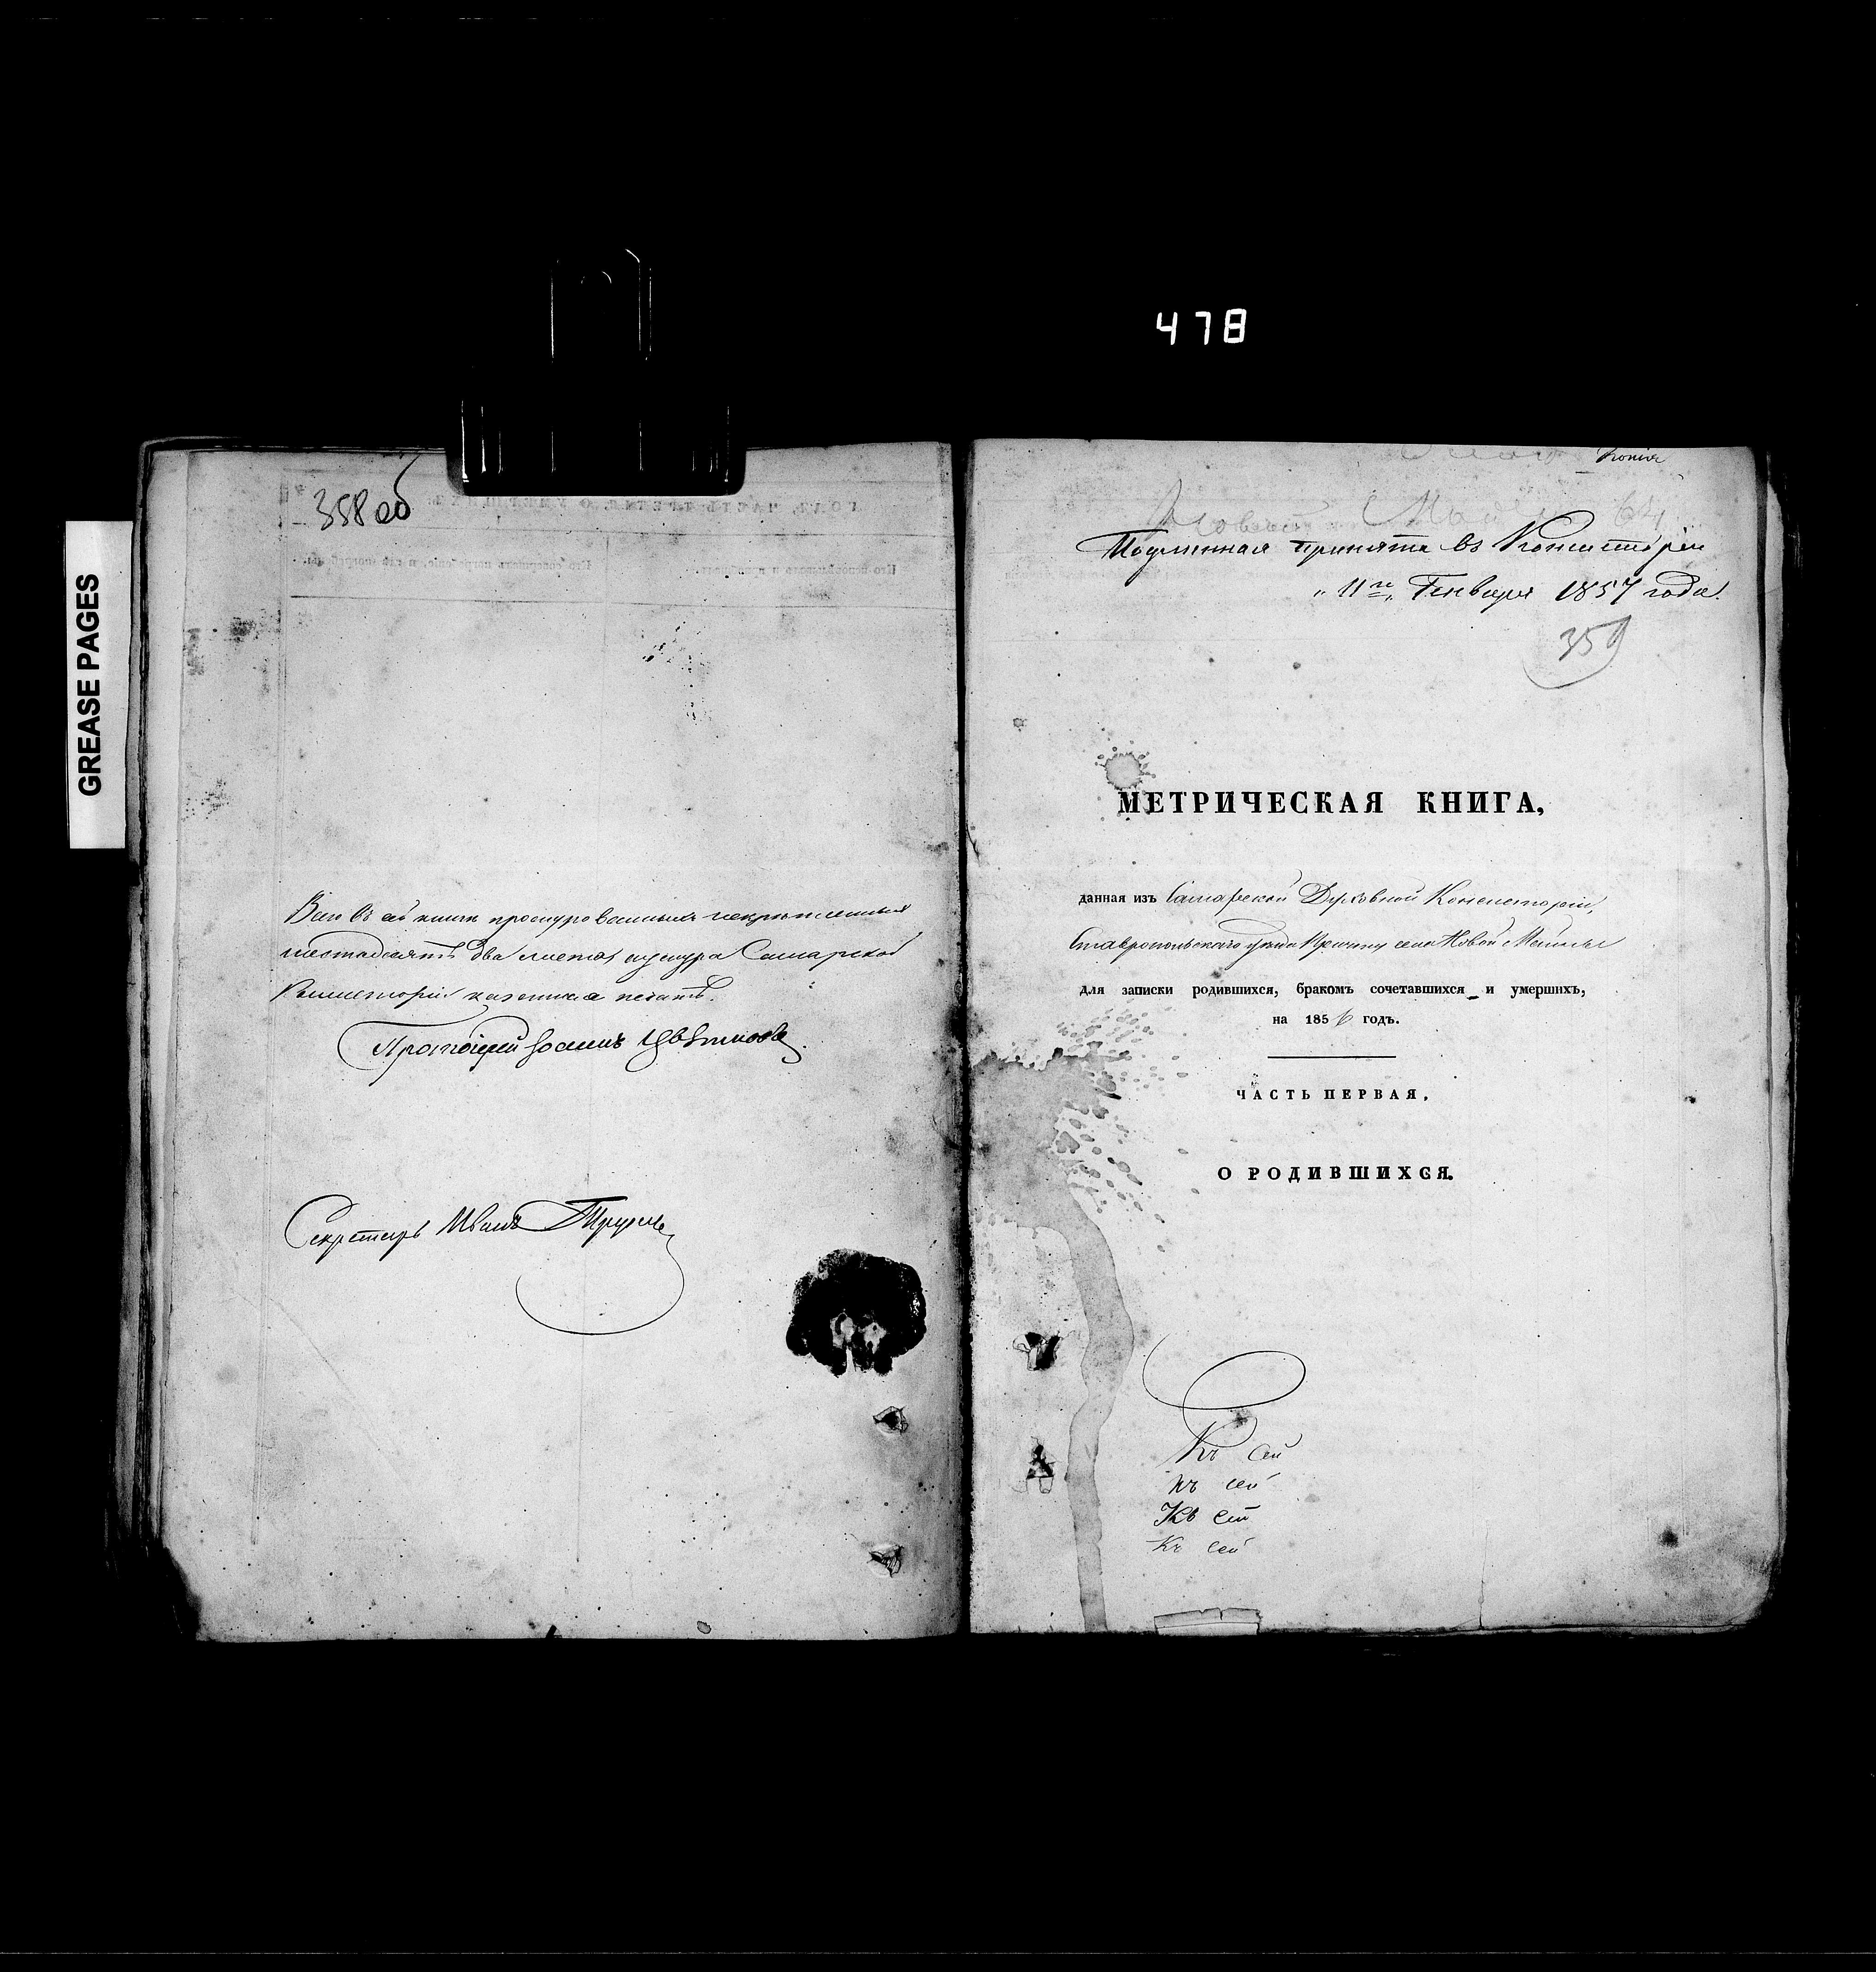 478
GREASE PAGES
358 об
Всего въ сей книгѣ прошнурованныхъ и скрѣпленныхъ
шестьдесятъ два листа, у шнура Самарской
Консисторіи казенная печать.
Протоіерей Іоаннъ Цвѣтковъ
Секретарь Иванъ
Копія
Подлинная принята въ Консисторіи
„11го„ Генваря 1857 года.
359
МЕТРИЧЕСКАЯ КНИГА,
данная изъ Самарской Духовной Консисторіи,
Ставропольскаго уѣзда Причту села Новой Майны
для записки родившихся, бракомъ сочетавшихся и умершихъ,
на 1856 годъ.
ЧАСТЬ ПЕРВАЯ,
О РОДИВШИХСЯ.
Къ сей
къ сей
Къ сей
Къ сей